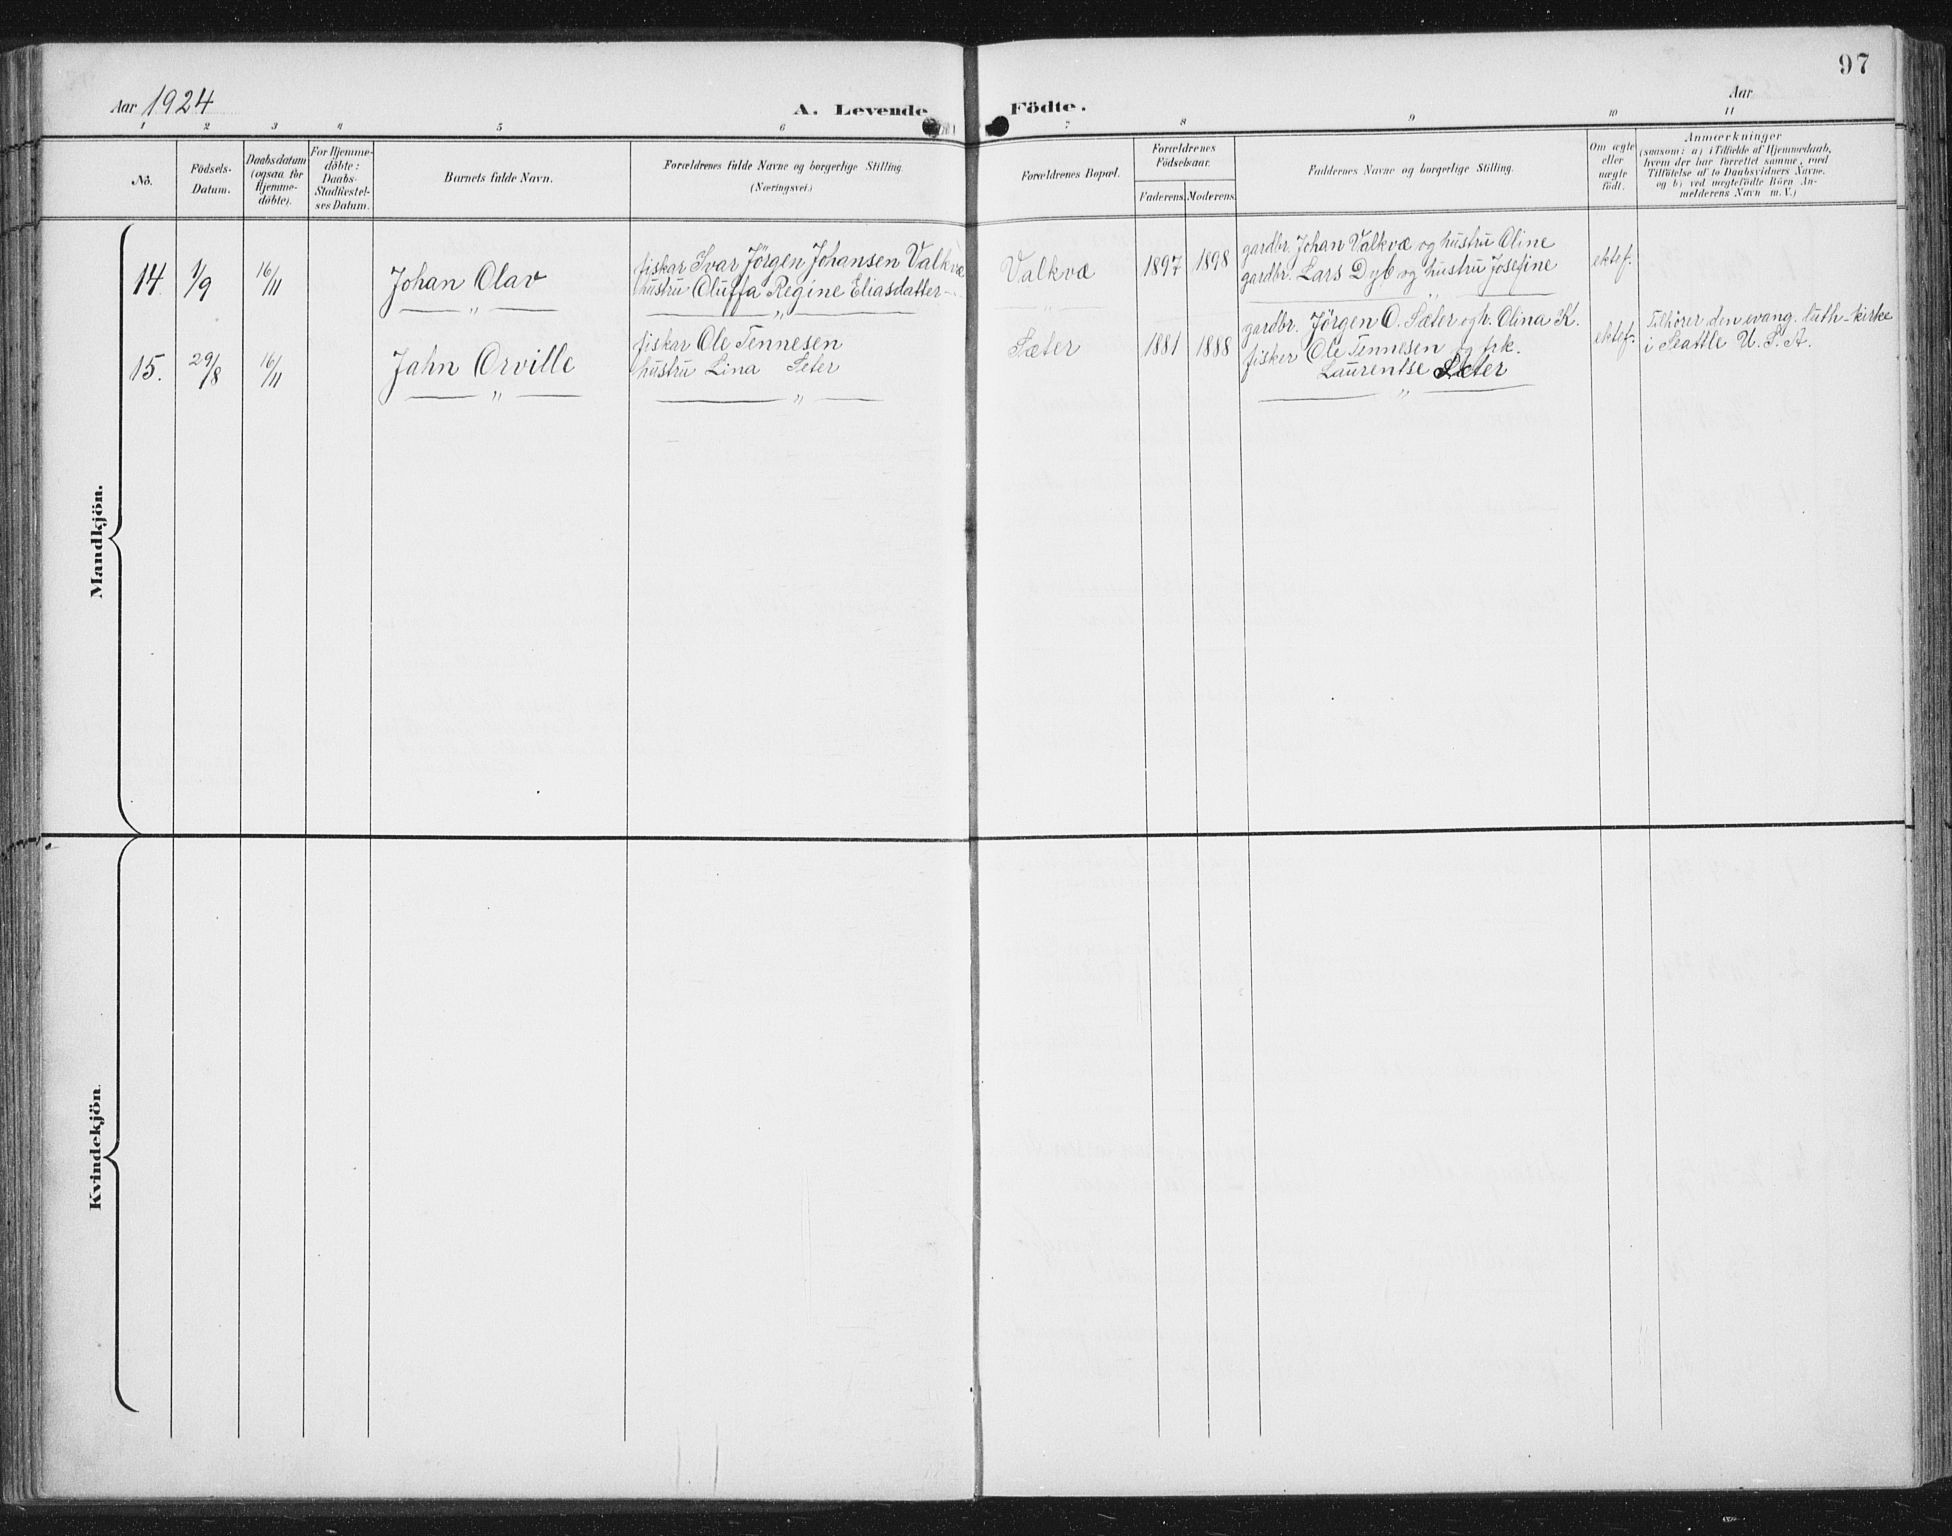 97
Aar 1924
A. Levende Födte.
Aar
1 2 3 4 5 6 7 8 9 10 11
No.
Födsels-
Datum.
Daabsdatum
(ogsaa for
Hjemme-
döbte).
For Hjemme-
döbte:
Daabs-
Stadfæstel-
ses Datum.
Barnets fulde Navn.
Forældrenes fulde Navne og borgerlige Stilling
(Næringsvei.)
Forældrenes Bopæl.
Forældrenes
Födselsaar.
Faderens. Moderens.
Faddernes Navne og borgerlige Stilling.
Om ægte
eller
uægte
födt.
Anmærkninger
(saasom: a) i Tilfælde af Hjemmedaab,
hvem der har forrettet samme, med
Tilföielse af to Daabsvidners Navne,
og b) ved uægtefödte Börn An-
melderens Navn m. V.)
Mandkjön.
14. 1/9 16/11 Johan Olav
fiskar Ivar Jörgen Johansen Valkvæ
hustru Oluffa Regine Eliasdatter
Valkvæ 1897 1898
gardbr. Johan Valkvæ og hustru Oline
gardbr. Lars Dyb og hustru Josefine
ektef.
15. 29/8 16/11 Jahn Orville
fiskar Ole Tennesen
hustru Lina Seter
Sæter 1881 1888
gardbr. Jörgen O. Sæter og h. Olina K.
fisker Ole Tennesen og frk.
Laurentse Sæter
ektef.
Tilhörer den evang. luth. kirke
i Seattle U. S. A.
Kvindekjön.